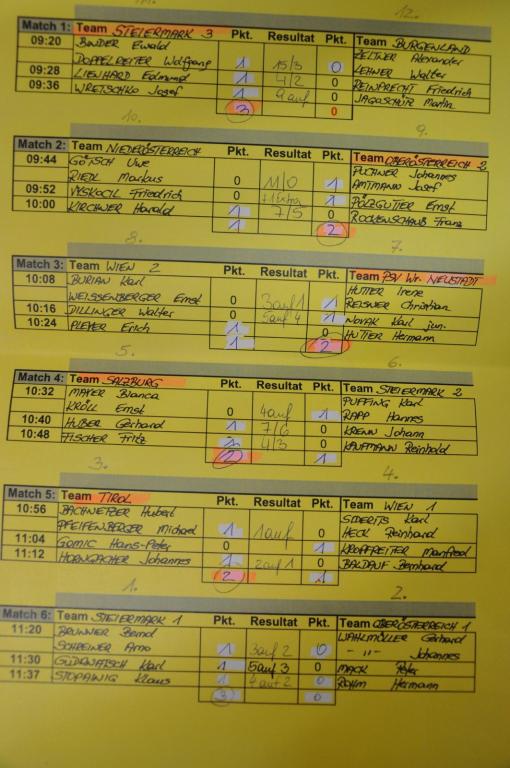 12.
Match 1: Team STEIERMARK 3 Pkt. Resultat Pkt. Team BURGENLAND
09:20 BINDER Ewald ZELTNER Alexander
DOPPELREITER Wolfgang 1 15/3 0 LEHNER Walter
09:28 LIENHARD Edmund 1 4/2 0 REINPRECHT Friedrich
09:36 WRETSCHKO Josef 1 9 auf 0 JAGASCHÜR Martin
3 0
10. 9.
Match 2: Team NIEDERÖSTERREICH Pkt. Resultat Pkt. Team OBERÖSTERREICH 2
09:44 GÖTSCH Uwe PUCHNER Johannes
RIEDL Markus 0 11/0 1 AMTMANN Josef
09:52 VYSKOCIL Friedrich 0 1 PÖLZGUTER Ernst
10:00 KIRCHNER Harald 1 7/5 0 ROCKENSCHAUB Franz
1 2
8. 7.
Match 3: Team WIEN 2 Pkt. Resultat Pkt. Team PSV Wr. NEUSTADT
10:08 BURIAN Karl HUTTER Irene
WEISSENBERGER Ernst 0 3 auf 1 1 REISNER Christian
10:16 DILLINGER Walter 0 5 auf 4 1 NOVAK Karl jun.
10:24 PLEYER Erich 1 0 HUTTER Hermann
1 2
5. 6.
Match 4: Team SALZBURG Pkt. Resultat Pkt. Team STEIERMARK 2
10:32 MAYER Bianca PUFFING Karl
KRÖLL Ernst 0 4 auf 1 RAPP Hannes
10:40 HUBER Gerhard 1 7/6 0 KRENN Johann
10:48 FISCHER Fritz 1 4/3 0 KAUFMANN Reinhold
2 1
3. 4.
Match 5: Team TIROL Pkt. Resultat Pkt. Team WIEN 1
10:56 BACHNETZER Hubert SIDERITS Karl
PFEIFENBERGER Michael 1 1 auf 0 HECK Reinhard
11:04 GOMIC Hans-Peter 0 1 KROPFREITER Manfred
11:12 HORNGACHER Johannes 1 2 auf 1 0 BALDAUF Bernhard
2 1
1. 2.
Match 6: Team STEIERMARK 1 Pkt. Resultat Pkt. Team OBERÖSTERREICH 1
11:20 BRUNNER Bernd WAHLMÜLLER Gerhard
SCHREINER Arno 1 3 auf 2 0 - " - Johannes
11:30 Karl 1 5 auf 3 0 MACK Peter
11:37 Klaus 1 auf 2 0 Hermann
3 0